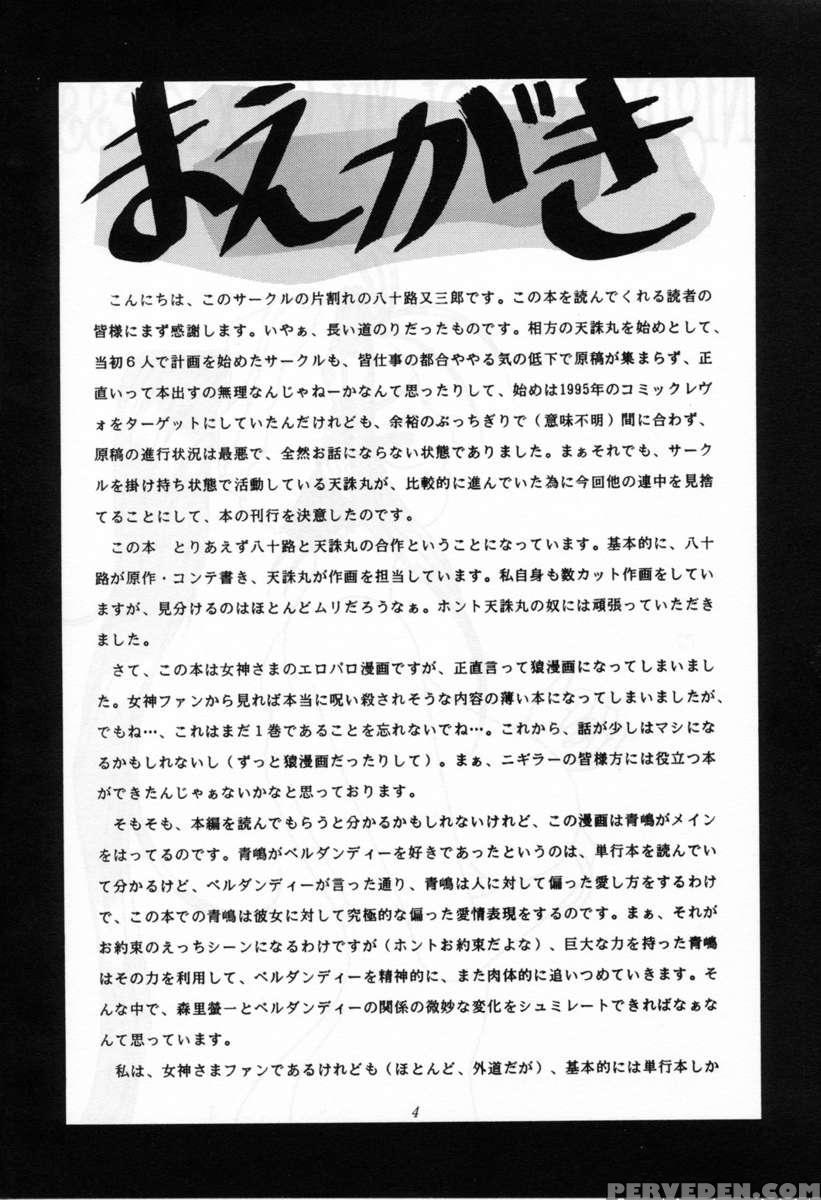 まえがき
こんにちは、このサークルの片割れの八十路又三郎です。この本を読んでくれる読者の
皆様にまず感謝します。いやぁ、長い道のりだったものです。相方の天誅丸を始めとして、
当初6人で計画を始めたサークルも、皆仕事の都合ややる気の低下で原稿が集まらず、正
直いって本出すの無理なんじゃねーかなんて思ったりして、始めは1995年のコミックレヴ
ォをターゲットにしていたんだけれども、余裕のぶっちぎりで(意味不明)間に合わず、
原稿の進行状況は最悪で、全然お話にならない状態でありました。まぁそれでも、サーク
ルを掛け持ち状態で活動している天誅丸が、比較的に進んでいた為に今回他の連中を見捨
てることにして、本の刊行を決意したのです。
この本 とりあえず八十路と天誅丸の合作ということになっています。基本的に、八十
路が原作・コンテ書き、天誅丸が作画を担当しています。私自身も数カット作画をしてい
ますが、見分けるのはほとんどムリだろうなぁ。ホント天誅丸の奴には頑張っていただき
ました。
さて、この本は女神さまのエロパロ漫画ですが、正直言って猿漫画になってしまいまし
た。女神ファンから見れば本当に呪い殺されそうな内容の薄い本になってしまいましたが、
でもね…、これはまだ1巻であることを忘れないでね…。これから、話が少しはマシにな
るかもしれないし(ずっと猿漫画だったりして)。まぁ、ニギラーの皆様方には役立つ本
ができたんじゃぁないかなと思っております。
そもそも、本編を読んでもらうと分かるかもしれないけれど、この漫画は青嶋がメイン
をはってるのです。青嶋がベルダンディーを好きであったというのは、単行本を読んでい
て分かるけど、ベルダンディーが言った通り、青嶋は人に対して偏った愛し方をするわけ
で、この本での青嶋は彼女に対して究極的な偏った愛情表現をするのです。まぁ、それが
お約束のえっちシーンになるわけですが(ホントお約束だよな)、巨大な力を持った青嶋
はその力を利用して、ベルダンディーを精神的に、また肉体的に追いつめていきます。そ
んな中で、森里螢一とベルダンディーの関係の微妙な変化をシュミレートできればなぁな
んて思っています。
私は、女神さまファンであるけれども(ほとんど、外道だが)、基本的には単行本しか
4
PERVEDEN.COM